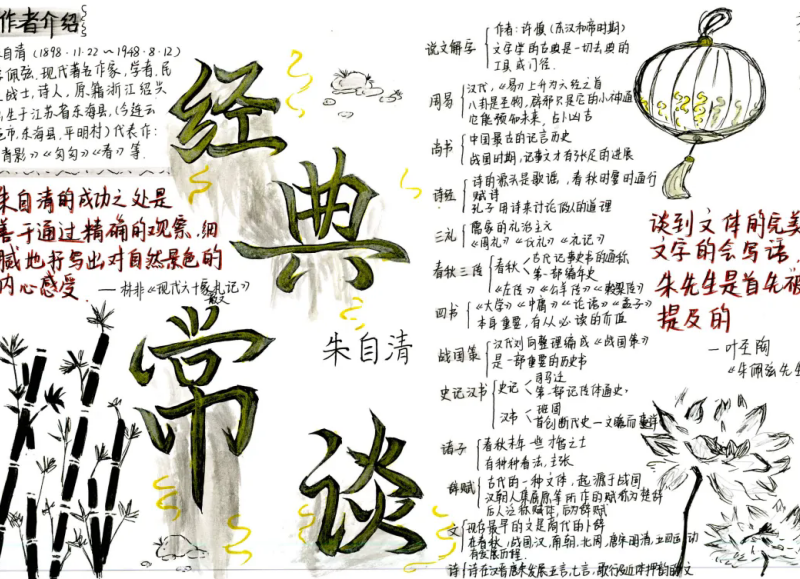 作者介绍
朱自清（1898·11·22～1948·8·12）
佩弦，现代著名作家，学者，民
战士，诗人，原籍浙江绍兴
生于江苏省东海县，(今连云
市，东海县，平明村）代表作：
背影》《匆匆》《春》等.
朱自清的成功之处是
善于通过精确的观察，细
腻地抒写出对自然景色的
内心感受.
—林非《现代六十家札记》
散文
经
典
常
谈
朱自清
说文解字
作者：许慎（东汉和帝时期）
文字学的古典是一切古典的
工具或门径.
周易
汉代，《易》上升为六经之首
八卦是圣物，
它能预知未来，占卜凶吉
尚书
中国最古的记言历史
战国时期，记事文才有长足的进展
诗经
诗的源头是歌谣，春秋时
赋诗
孔子用诗来讨论做人的道理
三礼
儒家的礼治主义
《周礼》《仪礼》《礼记》
春秋三传
春秋
古代记事史书的通称
第一部编年史
《左传》《公羊传》《榖梁传》
四书
《大学》《中庸》《论语》《孟子》
本身重要，有人人必读的价值
战国策
汉代刘向整理编成《战国策》
是一部重要的历史书
史记汉书
史记
司马迁
第一部记传体通史，
汉书
班固
首创断代史—文赡而事详
诸子
春秋末年一些才智之士
有种种看法，主张
辞赋
古代的一种文体，起源于战国
汉朝人集屈原等所作的赋称为楚辞
后人泛称赋体，后为辞赋
文
现存最早的文是商代的卜辞
在春秋，战国汉，南朝，北周，唐宋明清，五四运动
有发展历程.
诗
诗在汉着唐宋发展五言，七言，
谈到文体的完美
文字的会写话，
朱先生是首先被
提及的
—叶圣陶
《朱佩弦先生